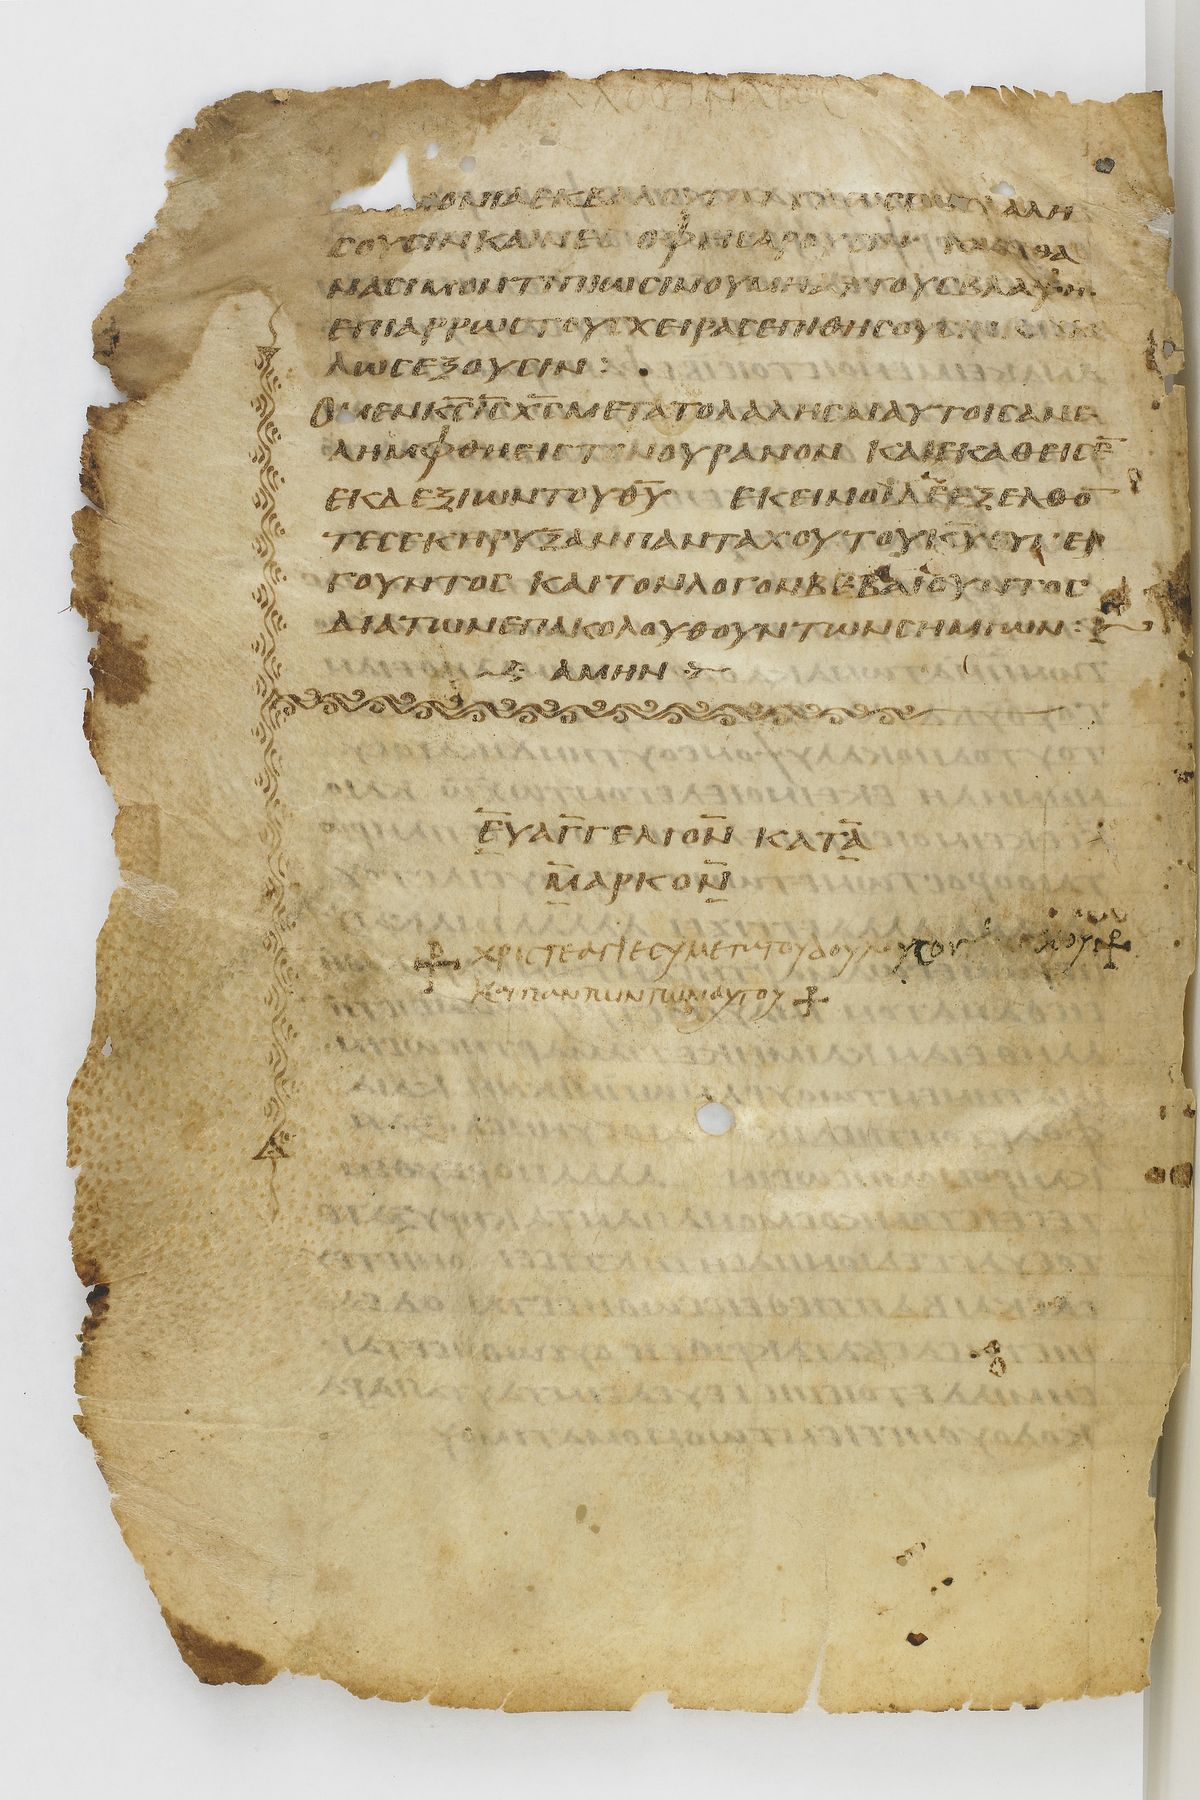 ΔΑΙΜΟΝΙΑ ΕΚΒΑΛΟΥΣΙΝ ΓΛΩΣΣΑΙΣ ΛΑΛΗ
ΣΟΥΣΙΝ ΚΑΙΝΕΣ ΟΦΙΣ ΑΡΟΥΣΙΝ ΚΑΝ ΘΑ
ΝΑΣΙΜΟΝ ΤΙ ΠΙΩΣΙΝ ΟΥ ΜΗ ΑΥΤΟΥΣ ΒΛΑΨΗ
ΕΠΙ ΑΡΡΩΣΤΟΥΣ ΧΕΙΡΑΣ ΕΠΙΘΗΣΟΥΣΙΝ
ΛΩΣ ΕΞΟΥΣΙΝ :
Ο ΜΕΝ Κ̅Σ̅ Ι̅Σ̅ Χ̅Σ̅ ΜΕΤΑ ΤΟ ΛΑΛΗΣΑΙ ΑΥΤΟΙΣ ΑΝΕ
ΛΗΜΦΘΗ ΕΙΣ ΤΟΝ ΟΥΡΑΝΟΝ ΚΑΙ ΕΚΑΘΕΙΣΕ̅
ΕΙΚ ΔΕΞΙΩΝ ΤΟΥ Θ̅Υ̅ ΕΚΕΙΝΟΙ ΔΕ ΕΞΕΛΘΟ̅
ΤΕΣ ΕΚΗΡΥΞΑΝ ΠΑΝΤΑΧΟΥ ΤΟΥ Κ̅Υ̅ ΣΥΝΕΡ
ΓΟΥΝΤΟΣ ΚΑΙ ΤΟΝ ΛΟΓΟΝ ΒΕΒΑΙΟΥΝΤΟΣ
ΔΙΑ ΤΩΝ ΕΠΑΚΟΛΟΥΘΟΥΝΤΩΝ ΣΗΜΙΩΝ :
ΑΜΗΝ
ΕΥΑΓΓΕΛΙΟΝ ΚΑΤΑ
ΜΑΡΚΟΝ
☩ ΧΡΙΣΤΕ ΑΓΙΕ ΣΥ ΜΕΤΑ ΤΟΥ ΔΟΥΛΟΥ ΣΟΥ ☩
ΚΑΙ ΠΑΝΤΩΝ ΤΩΝ ΑΥΤΟΥ ☩